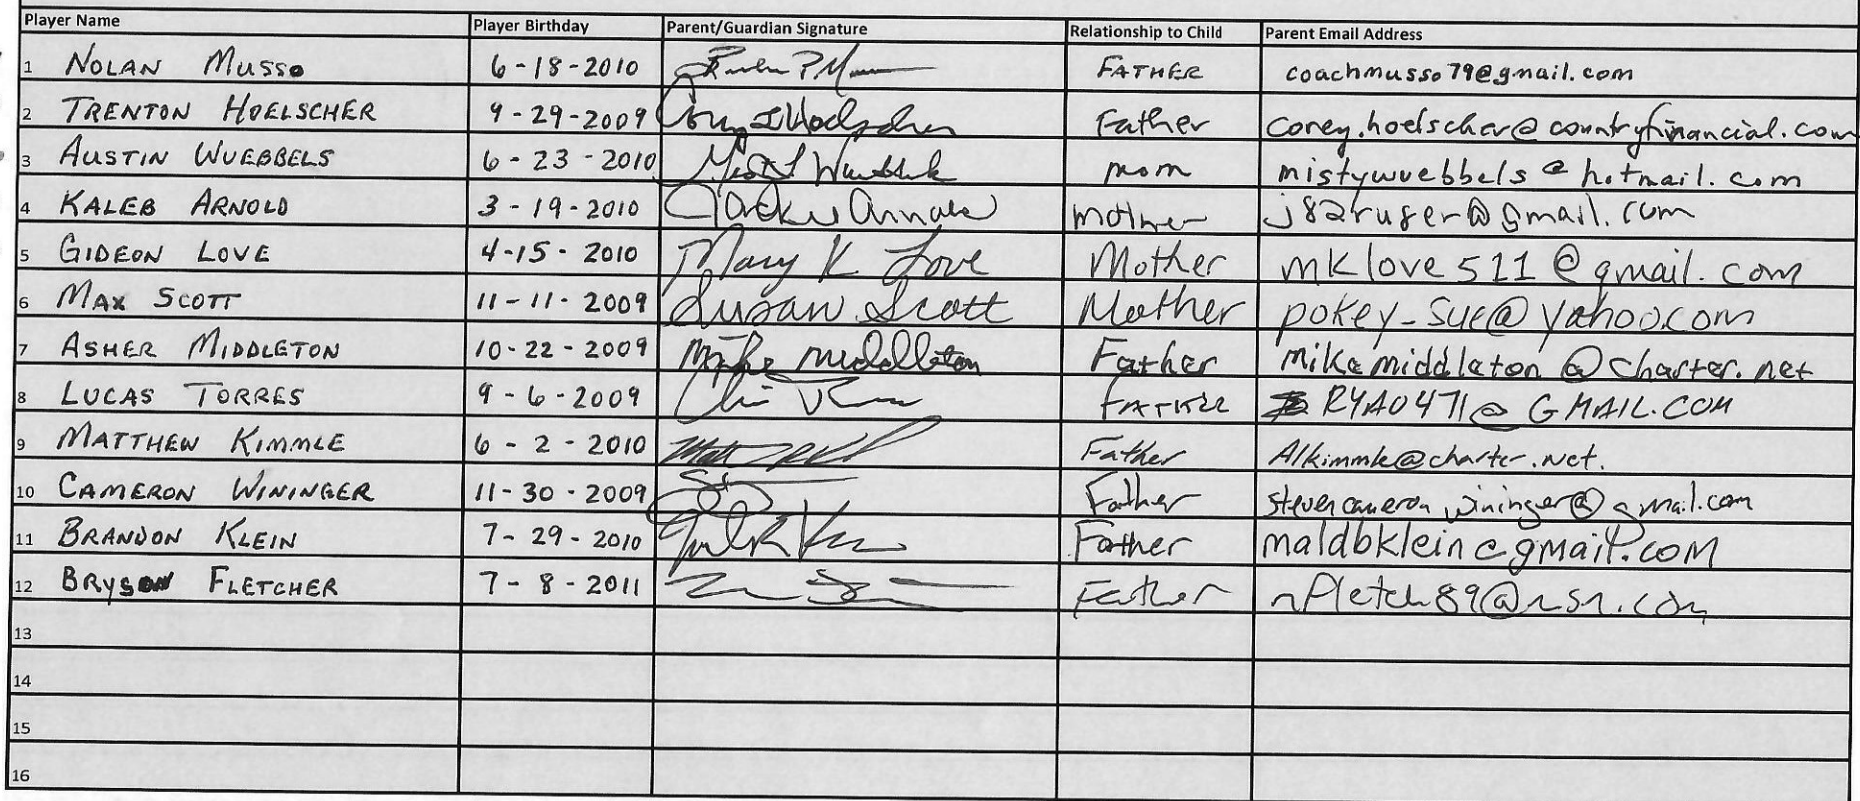 Player Name Player Birthday Parent/Guardian Signature Relationship to Child Parent Email Address
1 NOLAN MUSSO 6-18-2010 FATHER coachmusso79@gmail.com
2 TRENTON HOELSCHER 9-29-2009 Father corey.hoelscher@countryfinancial.com
3 AUSTIN WUEBBELS 6-23-2010 mom mistywuebbels@hotmail.com
4 KALEB ARNOLD 3-19-2010 Jackie Arnold mother j82ruger@gmail.com
5 GIDEON LOVE 4-15-2010 Mary K Love Mother mklove511@gmail.com
6 MAX SCOTT 11-11-2009 Susan Scott Mother pokey_sue@yahoo.com
7 ASHER MIDDLETON 10-22-2009 Mike Middleton Father mikemiddleton@charter.net
8 LUCAS TORRES 9-6-2009 FATHER RYA0471@GMAIL.COM
9 MATTHEW KIMMLE 6-2-2010 Father Alkimmle@charter.net.
10 CAMERON WININGER 11-30-2009 Father stevencameronwininger@gmail.com
11 BRANDON KLEIN 7-29-2010 Father maldbklein@gmail.com
12 BRYSON FLETCHER 7-8-2011 Father
13
14
15
16